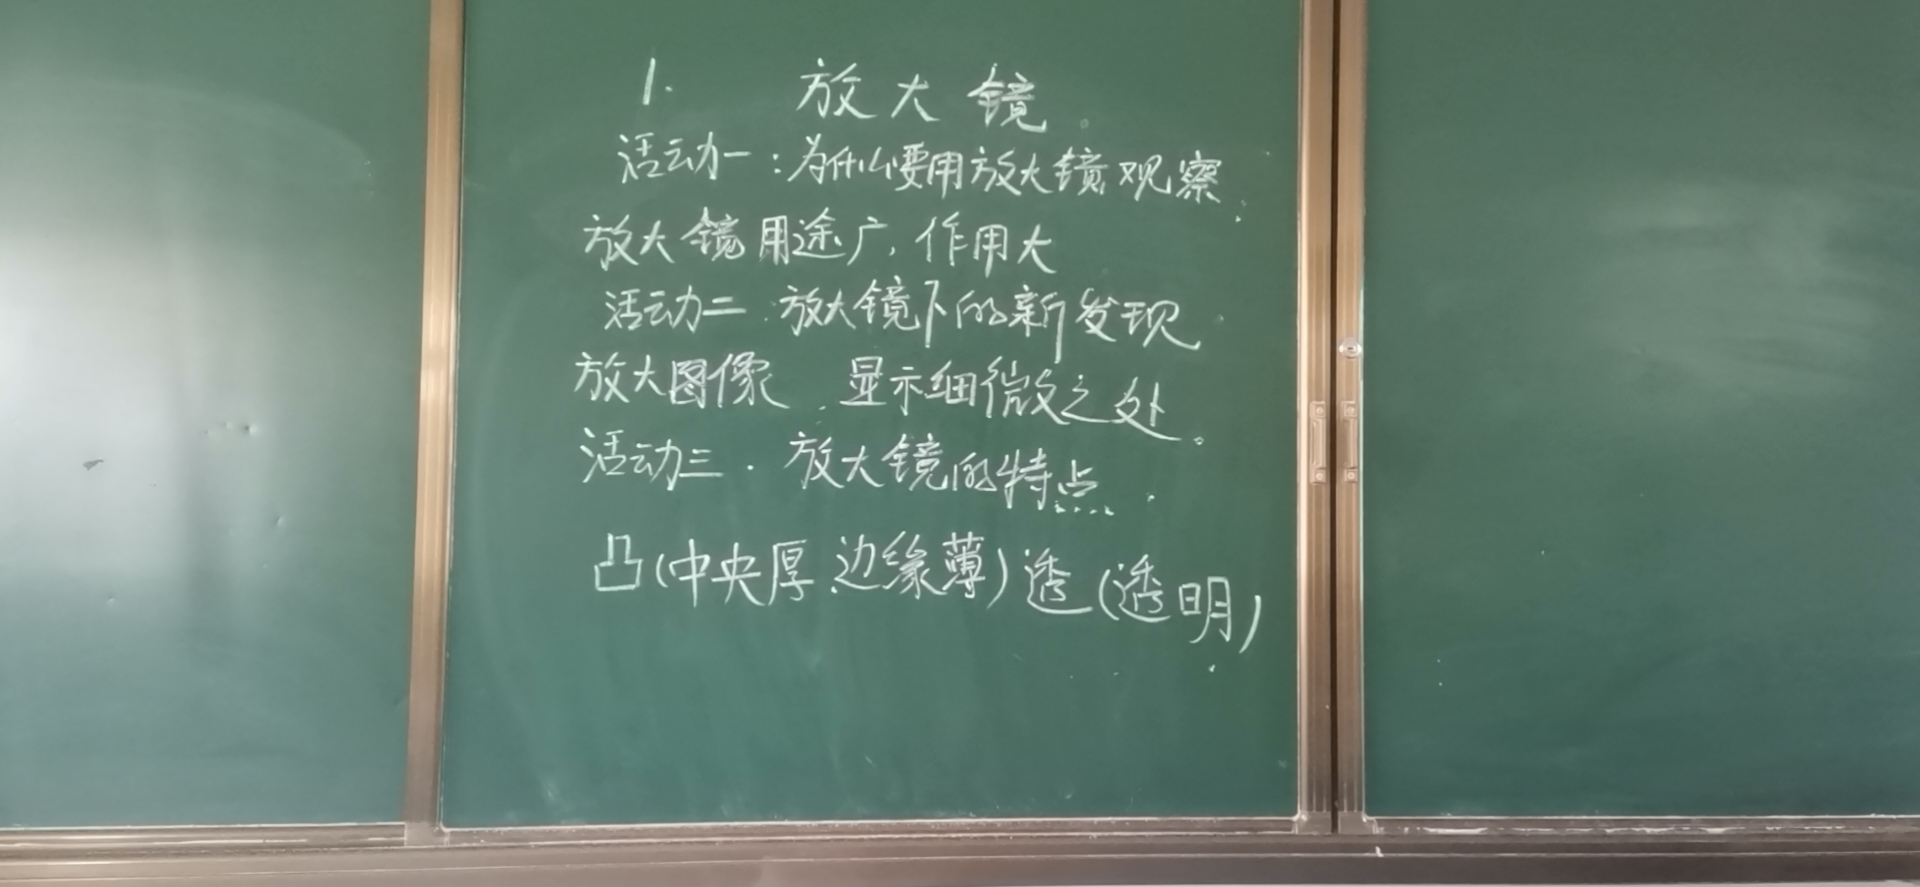 1. 放大镜
活动一:为什么要用放大镜观察.
放大镜用途广,作用大
活动二.放大镜下的新发现
放大图像.显示细微之处。
活动三.放大镜的特点
凸(中央厚.边缘薄)透(透明)